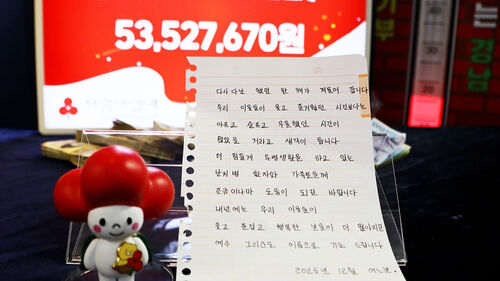 53,527,670원
다사다난 했던 한 해가 저물어 갑니다
우리 이웃들이 웃고 즐거웠던 시간보다는
아프고 슬프고 우울했던 시간이
많았을 거라고 생각이 됩니다
더 힘들게 투병생활을 하고 있는
난치병 환자와 가족분들께
조금이나마 도움이 되길 바랍니다
내년에는 우리 이웃들이
웃고 즐겁고 행복한 날들이 더 많아지길
예수 그리스도 이름으로 기도 드립니다
2025년 12월 어느날
기부
는
경남